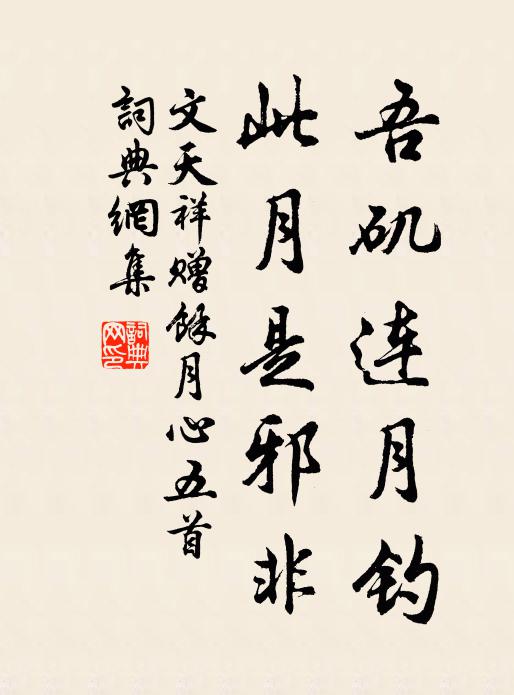 吾矶连月钓
此月是邪非
文天祥赠馀月心五首
詞典網集
詞典网印